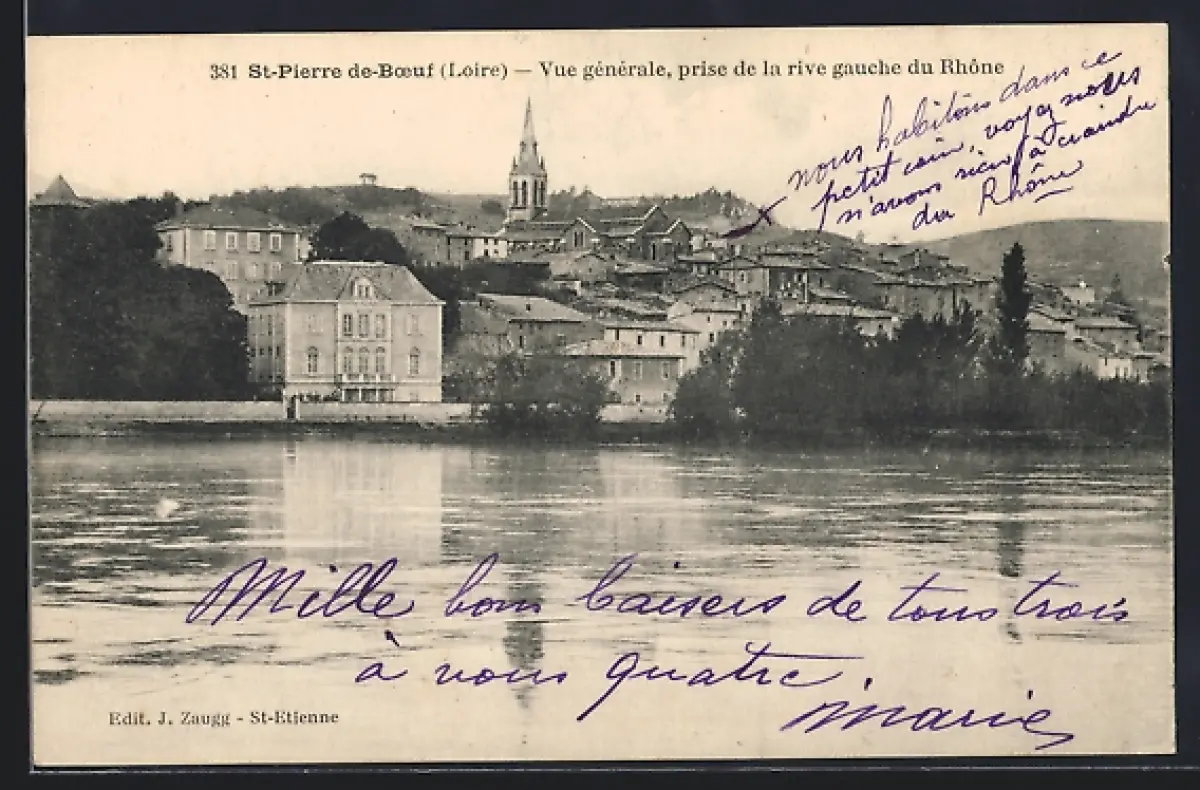 381 St-Pierre de-Bœuf (Loire) — Vue générale, prise de la rive gauche du Rhône
nous habitons dans ce
petit coin, voyez nous
n'avons rien à craindre
du Rhône
Mille bons baisers de tous trois
à vous quatre.
Marie
Edit. J. Zaugg - St-Etienne